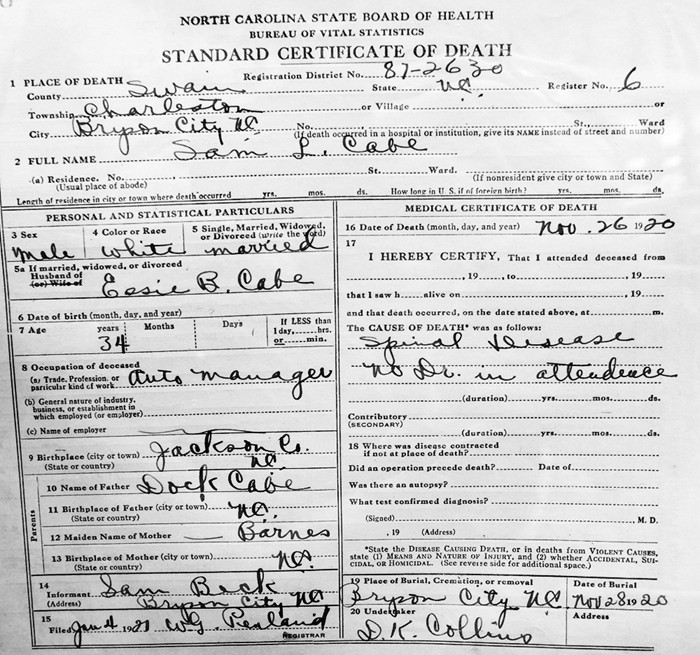 NORTH CAROLINA STATE BOARD OF HEALTH
BUREAU OF VITAL STATISTICS
STANDARD CERTIFICATE OF DEATH
1 PLACE OF DEATH Registration District No. 87-2630
County Swain State N.C. Register No. 6
Township Charleston or Village or
City Bryson City N.C. No. St., Ward
(If death occurred in a hospital or institution, give its NAME instead of street and number)
2 FULL NAME Sam L. Cabe
(a) Residence. No. St. Ward.
(Usual place of abode) (If nonresident give city or town and State)
Length of residence in city or town where death occurred yrs. mos. ds. How long in U. S. if of foreign birth? yrs. mos. ds.
PERSONAL AND STATISTICAL PARTICULARS
3 Sex 4 Color or Race 5 Single, Married, Widowed, or Divorced (write the word)
Male White married
5a If married, widowed, or divorced
Husband of
(or) Wife of Essie B. Cabe
6 Date of birth (month, day, and year)
7 Age years Months Days If LESS than
1 day, hrs.
34 or min.
8 Occupation of deceased
(a) Trade, Profession, or
particular kind of work Auto Manager
(b) General nature of industry,
business, or establishment in
which employed (or employer)
(c) Name of employer
9 Birthplace (city or town) Jackson Co.
(State or country) N.C.
Parents
10 Name of Father Dock Cabe
11 Birthplace of Father (city or town)
(State or country) N.C.
12 Maiden Name of Mother — Barnes
13 Birthplace of Mother (city or town)
(State or country) N.C.
14
Informant Sam Beck
(Address) Bryson City N.C.
15
Filed Jan 4 1921 W.G. Penland
REGISTRAR
MEDICAL CERTIFICATE OF DEATH
16 Date of Death (month, day, and year) Nov. 26 1920
17
I HEREBY CERTIFY, That I attended deceased from
, 19 , to , 19
that I saw h alive on , 19
and that death occurred, on the date stated above, at m.
The CAUSE OF DEATH* was as follows:
Spinal Disease
No Dr. in attendence
(duration) yrs. mos. ds.
Contributory
(SECONDARY)
(duration) yrs. mos. ds.
18 Where was disease contracted
if not at place of death?
Did an operation precede death? Date of
Was there an autopsy?
What test confirmed diagnosis?
(Signed) M. D.
, 19 (Address)
*State the DISEASE CAUSING DEATH, or in deaths from VIOLENT CAUSES,
state (1) MEANS AND NATURE OF INJURY, and (2) whether ACCIDENTAL, SUI-
CIDAL, or HOMICIDAL. (See reverse side for additional space.)
19 Place of Burial, Cremation, or removal Date of Burial
Bryson City N.C. Nov 28 1920
20 Undertaker Address
D.K. Collins